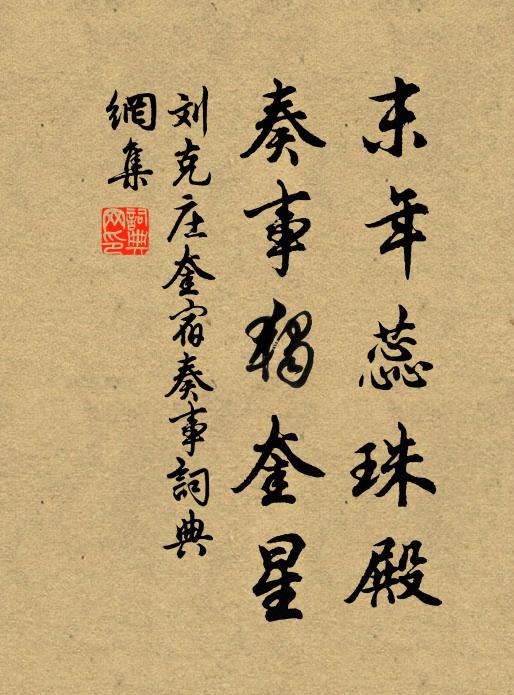 末年蕊珠殿
奏事独奎星
刘克庄奎宿奏事詞典
網集
詞典網印